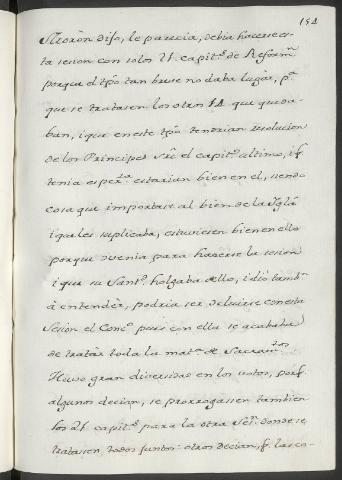 154
Moròn dijo, le parecia, debia hacerse es-
ta sesion con solos 21. capit.s de Reform.n
porque el tpõ tan breve no daba lugar, p.a
que se tratasen los otros 14 que queda-
ban, i que en este tpõ tendrian resolucion
de los Principes sr̃e el capit.o ultimo, i q̃
tenia esper.za estarian bien en el, siendo
cosa que importase al bien de la Iglã
i que les suplicaba, estuviesen bien en ello
porque convenia para hacerse la sesion
i que su Sant.d holgaba dello, i diò tamb.n
à entendèr, podria ser concluirse con esta
sesion el Conc.o pues con ella se acababa
de tratàr toda la mat.a de Sacram.tos
Huvo gran diversidad en los votos, porq̃
algunos decian, se prorrogasen tambien
los 21 capit.s para la otra Ses.n donde se
tratasen, todos juntos: otros decian, q̃ las co-